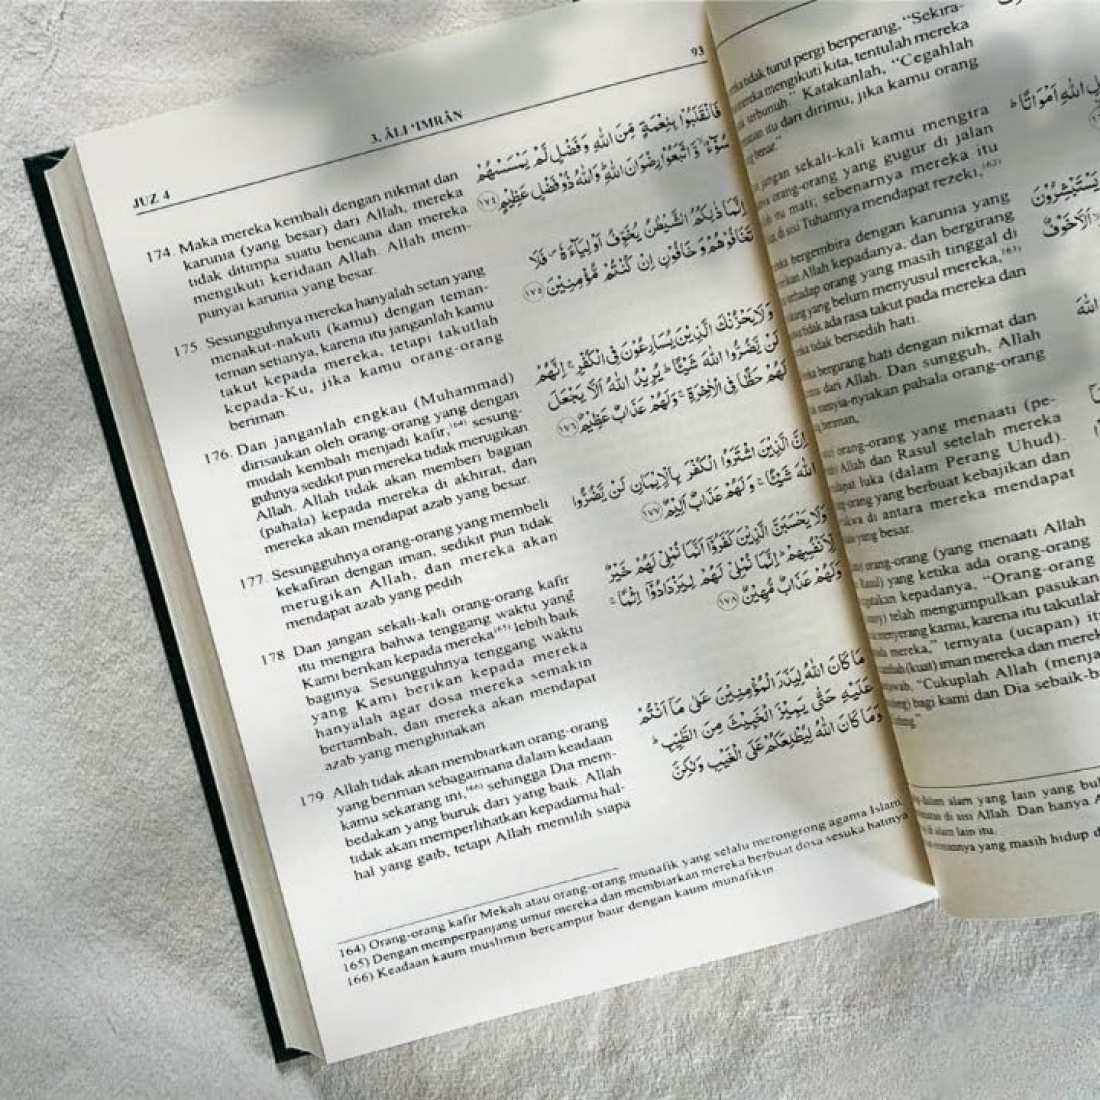 JUZ 4
3. ÂLI ‘IMRÂN
93
174. Maka mereka kembali dengan nikmat dan
karunia (yang besar) dari Allah, mereka
tidak ditimpa suatu bencana dan mereka
mengikuti keridaan Allah. Allah mem-
punyai karunia yang besar.
175. Sesungguhnya mereka hanyalah setan yang
menakut-nakuti (kamu) dengan teman-
teman setianya, karena itu janganlah kamu
takut kepada mereka, tetapi takutlah
kepada-Ku, jika kamu orang-orang
beriman.
176. Dan janganlah engkau (Muhammad)
dirisaukan oleh orang-orang yang dengan
mudah kembali menjadi kafir,¹⁶⁴⁾ sesung-
guhnya sedikit pun mereka tidak merugikan
Allah. Allah tidak akan memberi bagian
(pahala) kepada mereka di akhirat, dan
mereka akan mendapat azab yang besar.
177. Sesungguhnya orang-orang yang membeli
kekafiran dengan iman, sedikit pun tidak
merugikan Allah; dan mereka akan
mendapat azab yang pedih
178. Dan jangan sekali-kali orang-orang kafir
itu mengira bahwa tenggang waktu yang
Kami berikan kepada mereka¹⁶⁵⁾ lebih baik
baginya. Sesungguhnya tenggang waktu
yang Kami berikan kepada mereka
hanyalah agar dosa mereka semakin
bertambah, dan mereka akan mendapat
azab yang menghinakan
179. Allah tidak akan membiarkan orang-orang
yang beriman sebagaimana dalam keadaan
kamu sekarang ini,¹⁶⁶⁾ sehingga Dia mem-
bedakan yang buruk dari yang baik. Allah
tidak akan memperlihatkan kepadamu hal-
hal yang gaib, tetapi Allah memilih siapa
فَانْقَلَبُوْا بِنِعْمَةٍ مِّنَ اللّٰهِ وَفَضْلٍ لَّمْ يَمْسَسْهُمْ
سُوْۤءٌۙ وَّاتَّبَعُوْا رِضْوَانَ اللّٰهِ ۗ وَاللّٰهُ ذُوْ فَضْلٍ عَظِيْمٍ ١٧٤
اِنَّمَا ذٰلِكُمُ الشَّيْطٰنُ يُخَوِّفُ اَوْلِيَاۤءَهٗۖ فَلَا
تَخَافُوْهُمْ وَخَافُوْنِ اِنْ كُنْتُمْ مُّؤْمِنِيْنَ ١٧٥
وَلَا يَحْزُنْكَ الَّذِيْنَ يُسَارِعُوْنَ فِى الْكُفْرِۚ اِنَّهُمْ
لَنْ يَّضُرُّوا اللّٰهَ شَيْـًٔاۗ يُرِيْدُ اللّٰهُ اَلَّا يَجْعَلَ
لَهُمْ حَظًّا فِى الْاٰخِرَةِ ۚ وَلَهُمْ عَذَابٌ عَظِيْمٌ ١٧٦
اِنَّ الَّذِيْنَ اشْتَرَوُا الْكُفْرَ بِالْاِيْمَانِ لَنْ يَّضُرُّوا
اللّٰهَ شَيْـًٔاۚ وَلَهُمْ عَذَابٌ اَلِيْمٌ ١٧٧
وَلَا يَحْسَبَنَّ الَّذِيْنَ كَفَرُوْٓا اَنَّمَا نُمْلِيْ لَهُمْ خَيْرٌ
لِّاَنْفُسِهِمْ ۗ اِنَّمَا نُمْلِيْ لَهُمْ لِيَزْدَادُوْٓا اِثْمًا ۚ
وَلَهُمْ عَذَابٌ مُّهِيْنٌ ١٧٨
مَا كَانَ اللّٰهُ لِيَذَرَ الْمُؤْمِنِيْنَ عَلٰى مَآ اَنْتُمْ
عَلَيْهِ حَتّٰى يَمِيْزَ الْخَبِيْثَ مِنَ الطَّيِّبِ ۗ
وَمَا كَانَ اللّٰهُ لِيُطْلِعَكُمْ عَلَى الْغَيْبِ وَلٰكِنَّ
164) Orang-orang kafir Mekah atau orang-orang munafik yang selalu merongrong agama Islam.
165) Dengan memperpanjang umur mereka dan membiarkan mereka berbuat dosa sesuka hatinya
166) Keadaan kaum muslimin bercampur baur dengan kaum munafikin
tidak turut pergi berperang, “Sekira-
mengikuti kita, tentulah mereka
terbunuh.” Katakanlah, “Cegahlah
itu dari dirimu, jika kamu orang
jangan sekali-kali kamu mengira
orang-orang yang gugur di jalan
itu mati; sebenarnya mereka itu
di sisi Tuhannya mendapat rezeki,¹⁶²⁾
bergembira dengan karunia yang
Allah kepadanya, dan bergirang
terhadap orang yang masih tinggal di
yang belum menyusul mereka,¹⁶³⁾
tidak ada rasa takut pada mereka dan
tidak bersedih hati.
bergirang hati dengan nikmat dan
dari Allah. Dan sungguh, Allah
menyia-nyiakan pahala orang-orang
beriman,
orang-orang yang menaati (pe-
Allah dan Rasul setelah mereka
luka (dalam Perang Uhud).
orang yang berbuat kebajikan dan
di antara mereka mendapat
yang besar.
orang-orang (yang menaati Allah
Rasul) yang ketika ada orang-orang
kepadanya, “Orang-orang
telah mengumpulkan pasukan
menyerang kamu, karena itu takutlah
mereka,” ternyata (ucapan) it
(kuat) iman mereka dan merek
“Cukuplah Allah (menja
bagi kami dan Dia sebaik-b
اللّٰهِ اَمْوَاتًا ۗ
يَسْتَبْشِرُوْنَ
اَلَّا خَوْفٌ
اللّٰهَ
dalam alam yang lain yang bu
di sisi Allah. Dan hanya A
di alam lain itu.
yang masih hidup d